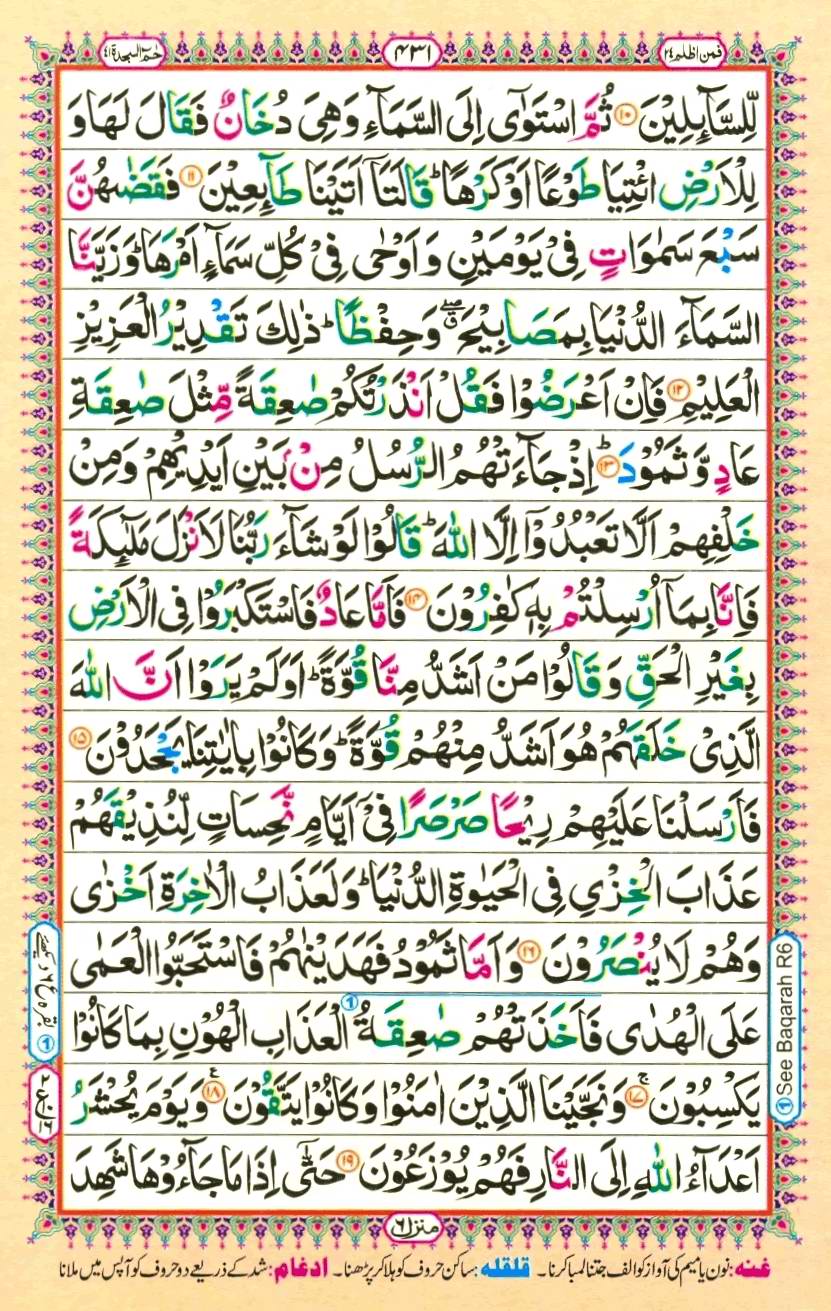 فمن اظلم ٢٤
٤٣١
حٰمٓ السجدة ٤١
لِّلسَّآىِٕلِیْنَ ۝١٠ ثُمَّ اسْتَوٰۤی اِلَی السَّمَآءِ وَهِیَ دُخَانٌ فَقَالَ لَهَا وَ
لِلْاَرْضِ ائْتِیَا طَوْعًا اَوْ كَرْهًا ؕ قَالَتَاۤ اَتَیْنَا طَآىِٕعِیْنَ ۝١١ فَقَضٰىهُنَّ
سَبْعَ سَمٰوَاتٍ فِیْ یَوْمَیْنِ وَ اَوْحٰی فِیْ كُلِّ سَمَآءٍ اَمْرَهَا ؕ وَ زَیَّنَّا
السَّمَآءَ الدُّنْیَا بِمَصَابِیْحَ ۖۗ وَ حِفْظًا ؕ ذٰلِكَ تَقْدِیْرُ الْعَزِیْزِ
الْعَلِیْمِ ۝١٢ فَاِنْ اَعْرَضُوْا فَقُلْ اَنْذَرْتُكُمْ صٰعِقَةً مِّثْلَ صٰعِقَةِ
عَادٍ وَّ ثَمُوْدَ ؕ ۝١٣ اِذْ جَآءَتْهُمُ الرُّسُلُ مِنْۢ بَیْنِ اَیْدِیْهِمْ وَمِنْ
خَلْفِهِمْ اَلَّا تَعْبُدُوْۤا اِلَّا اللّٰهَ ؕ قَالُوْا لَوْ شَآءَ رَبُّنَا لَاَنْزَلَ مَلٰٓىِٕكَةً
فَاِنَّا بِمَاۤ اُرْسِلْتُمْ بِهٖ كٰفِرُوْنَ ۝١٤ فَاَمَّا عَادٌ فَاسْتَكْبَرُوْا فِی الْاَرْضِ
بِغَیْرِ الْحَقِّ وَ قَالُوْا مَنْ اَشَدُّ مِنَّا قُوَّةً ؕ اَوَلَمْ یَرَوْا اَنَّ اللّٰهَ
الَّذِیْ خَلَقَهُمْ هُوَ اَشَدُّ مِنْهُمْ قُوَّةً ؕ وَ كَانُوْا بِاٰیٰتِنَا یَجْحَدُوْنَ ۝١٥
فَاَرْسَلْنَا عَلَیْهِمْ رِیْحًا صَرْصَرًا فِیْۤ اَیَّامٍ نَّحِسَاتٍ لِّنُذِیْقَهُمْ
عَذَابَ الْخِزْیِ فِی الْحَیٰوةِ الدُّنْیَا ؕ وَ لَعَذَابُ الْاٰخِرَةِ اَخْزٰی
وَهُمْ لَا یُنْصَرُوْنَ ۝١٦ وَ اَمَّا ثَمُوْدُ فَهَدَیْنٰهُمْ فَاسْتَحَبُّوا الْعَمٰی
عَلَی الْهُدٰی فَاَخَذَتْهُمْ صٰعِقَةُ الْعَذَابِ الْهُوْنِ بِمَا كَانُوْا
یَكْسِبُوْنَ ۚ ۝١٧ وَ نَجَّیْنَا الَّذِیْنَ اٰمَنُوْا وَ كَانُوْا یَتَّقُوْنَ ۠ ۝١٨ وَ یَوْمَ یُحْشَرُ
اَعْدَآءُ اللّٰهِ اِلَی النَّارِ فَهُمْ یُوْزَعُوْنَ ۝١٩ حَتّٰۤی اِذَا مَا جَآءُوْهَا شَهِدَ
1 See Baqarah R6
منزل ٦
غنه: نون یا میم کی آواز کو الف جتنا لمبا کرنا۔ قلقله: ساکن حروف کو ہلا کر پڑھنا۔ ادغام: شد کے ذریعے دو حروف کو آپس میں ملانا